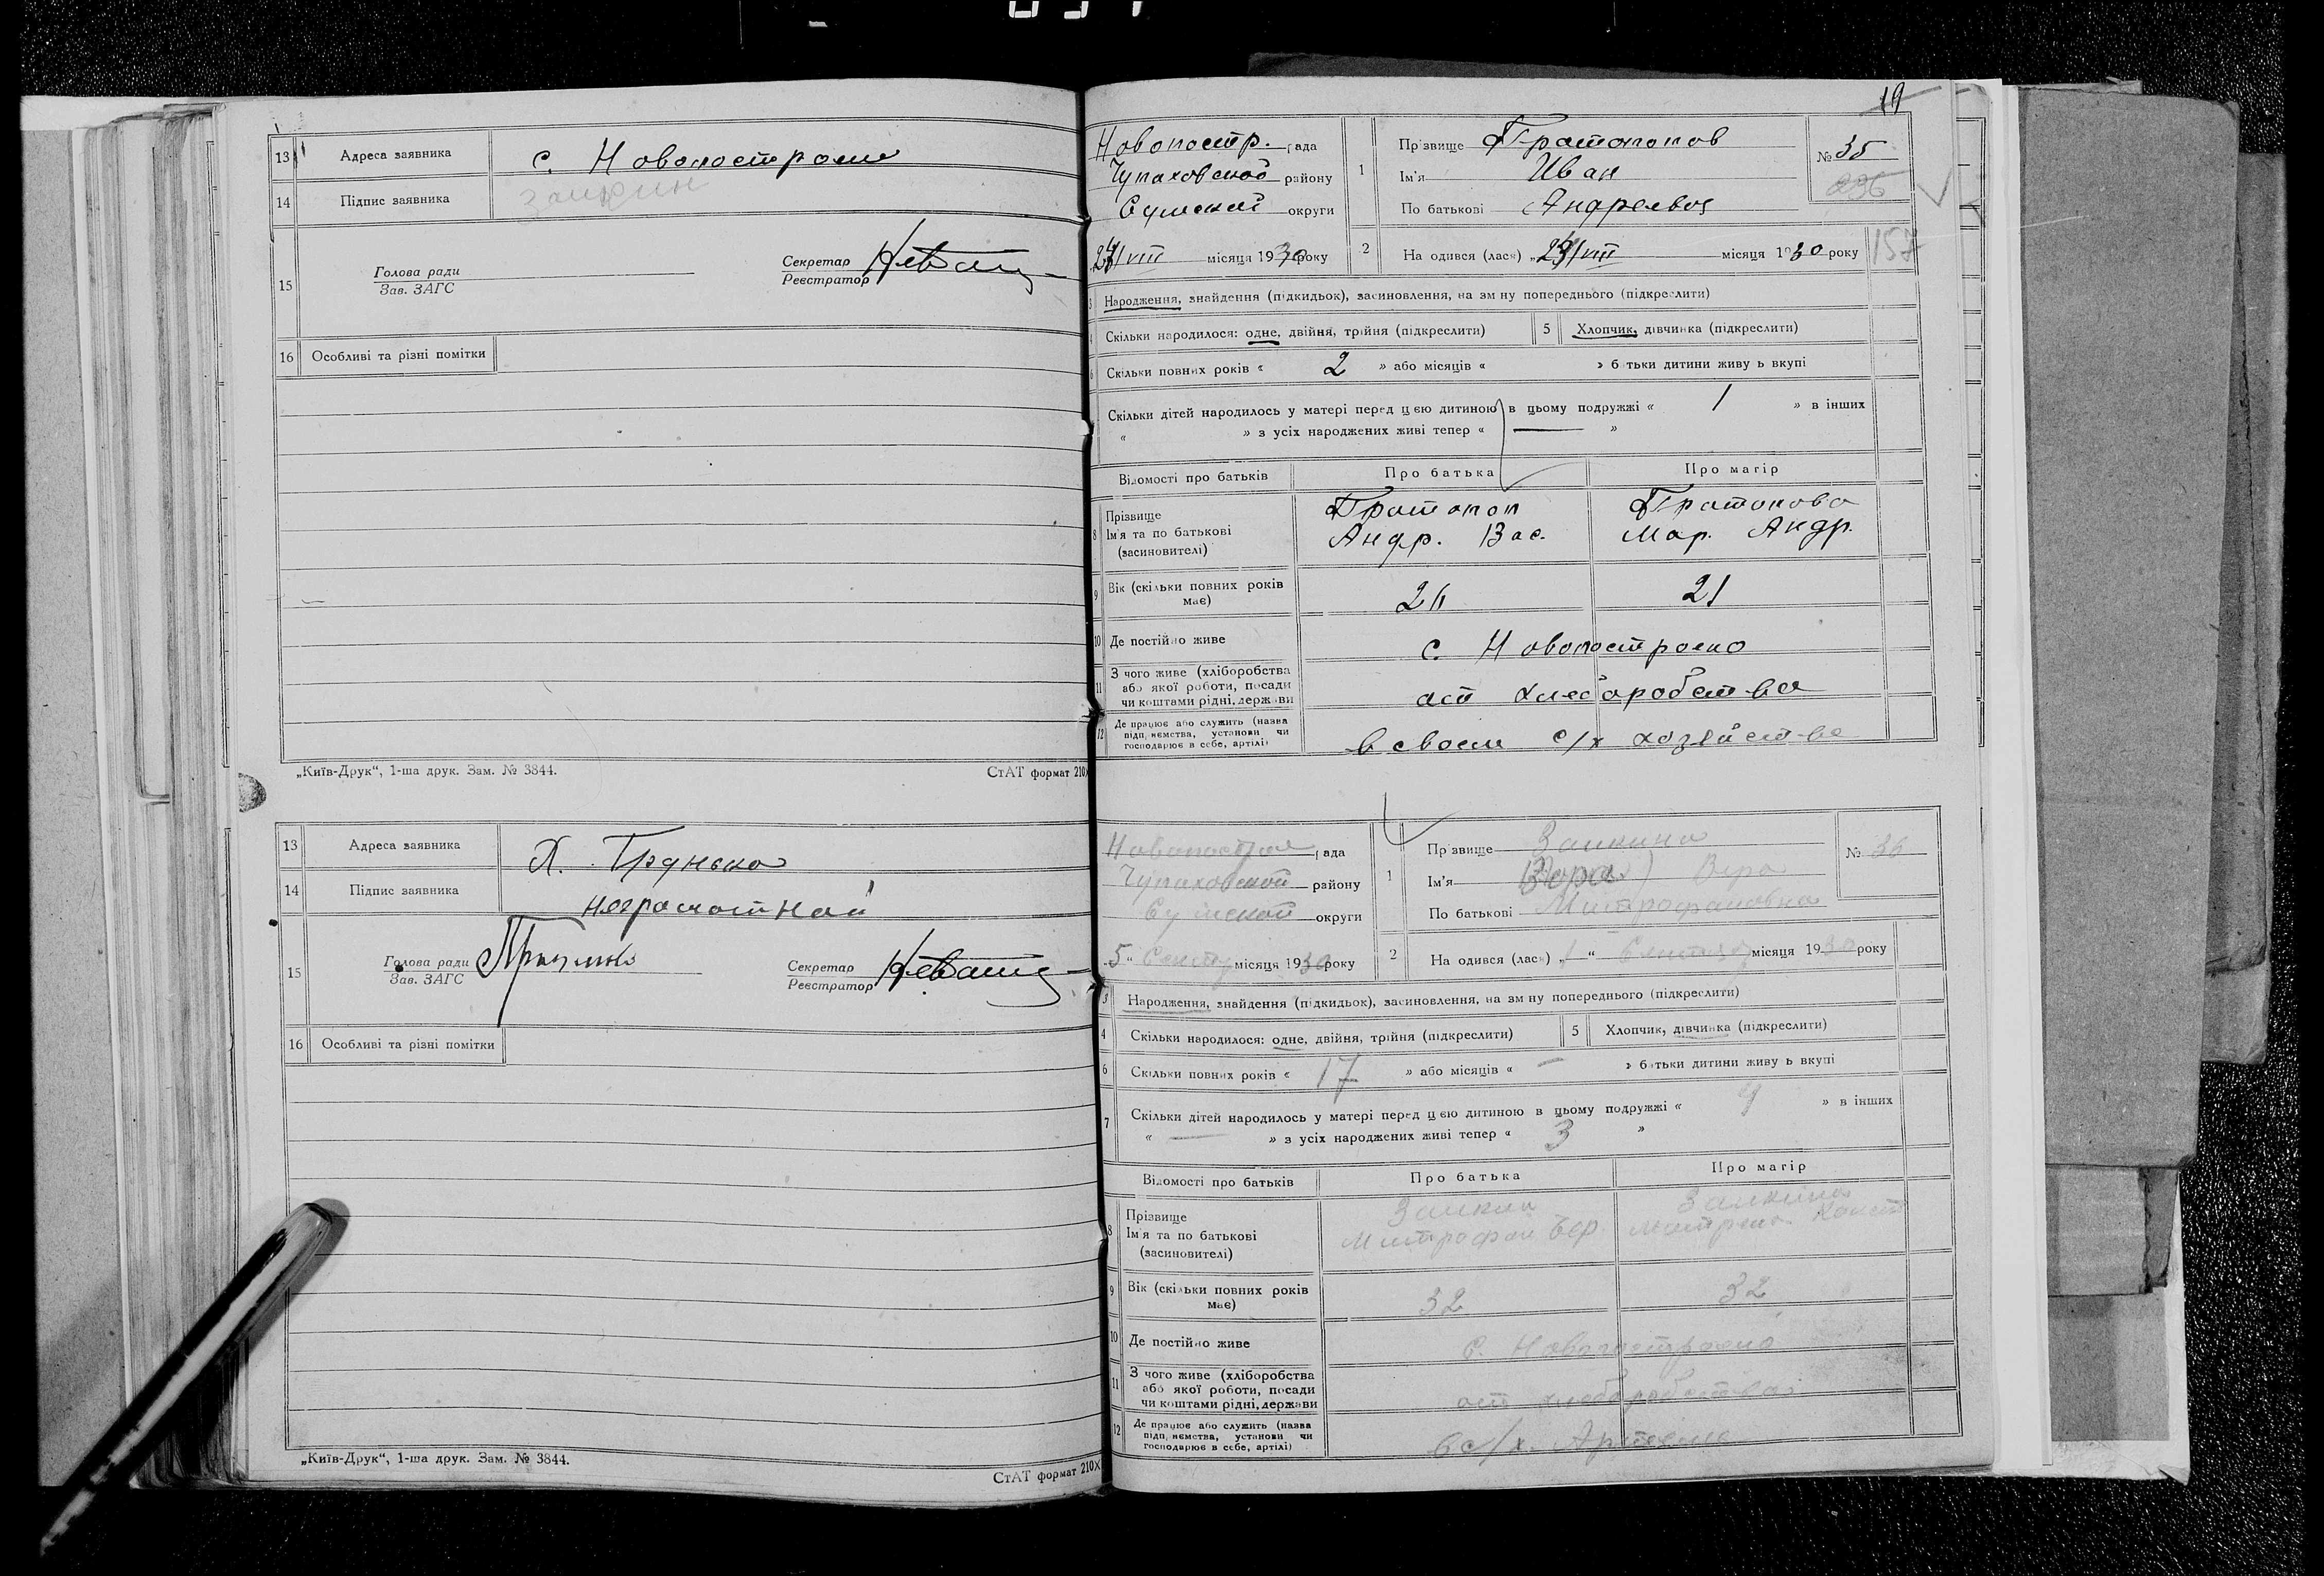 13 Адреса заявника с. Новопостроен
14 Підпис заявника Заикин
15 Голова ради
Зав. ЗАГС
Секретар
Реєстратор
16 Особливі та різні помітки
„Київ-Друк“, 1-ша друк. Зам. № 3844. СтАТ формат 210×
13 Адреса заявника Х. Грунька
14 Підпис заявника неграмотной
15 Голова ради
Зав. ЗАГС
Секретар
Реєстратор
16 Особливі та різні помітки
„Київ-Друк“, 1-ша друк. Зам. № 3844.
СтАТ формат 210×
19
Новопостр. рада
Чупаховской району
Сумской округи
24/VIII місяця 1930 року
1 Прізвище Протопопов
Ім'я Иван
По батькові Андреевич
№ 35
236
2 На одився (лася) „ 23/VIII місяця 1930 року
157
3 Народження, знайдення (підкидьок), засиновлення, на зм ну попереднього (підкреслити)
4 Скільки народилося: одне, двійня, трійня (підкреслити) 5 Хлопчик, дівчинка (підкреслити)
6 Скільки повних років « 2 » або місяців « » батьки дитини живу ь вкупі
Скільки дітей народилось у матері перед цією дитиною в цьому подружжі « 1 » в інших
« » з усіх народжених живі тепер « — »
Відомості про батьків Про батька Про матір
8 Прізвище
Ім'я та по батькові
(засиновителі)
Протопоп
Андр. Вас.
Протопова
Мар. Андр.
9 Вік (скільки повних років
має)
26 21
10 Де постійно живе с. Новопостроено
11 З чого живе (хліборобства
або якої роботи, посади
чи коштами рідні, держави
от хлеборобства
12 Де працює або служить (назва
підприємства, установи чи
господарює в себе, артілі)
в своем с/х хозяйстве
Новопострое рада
Чупаховской району
Сумской округи
„5“ Сентя місяця 1930 року
1 Прізвище Заикина
Ім'я Вера
По батькові Митрофановна
№ 36
2 На одився (лася) „1“ Сентяб місяця 1930 року
3 Народження, знайдення (підкидьок), засиновлення, на зм ну попереднього (підкреслити)
4 Скільки народилося: одне, двійня, трійня (підкреслити) 5 Хлопчик, дівчинка (підкреслити)
6 Скільки повних років « 17 » або місяців « — » батьки дитини живу ь вкупі
7 Скільки дітей народилось у матері перед цією дитиною в цьому подружжі « » в інших
« — » з усіх народжених живі тепер « 3 »
Відомості про батьків Про батька Про матір
8 Прізвище
Ім'я та по батькові
(засиновителі)
Заикин
Митрофан
Заикина
Матрена Конст
9 Вік (скільки повних років
має)
32 32
10 Де постійно живе с. Новопостроено
11 З чого живе (хліборобства
або якої роботи, посади
чи коштами рідні, держави
от хлеборобства
12 Де працює або служить (назва
підприємства, установи чи
господарює в себе, артілі)
в с/х. Артели